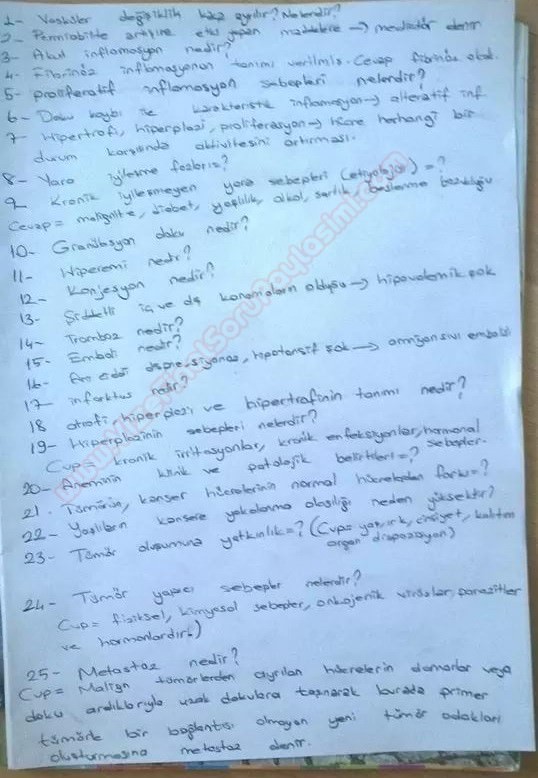 1- Vasküler değişiklik kaça ayrılır? Nelerdir?
2- Permiabilite artışına etki yapan maddelere → mediatör denir
3- Akut inflamasyon nedir?
4- Fibrinöz inflamasyonun tanımı verilmiş. Cevap fibrinöz olcak.
5- proliferatif inflamasyon sebepleri nelerdir?
6- Doku kaybı ile karakteristik inflamasyon → alteratif inf
7- Hipertrofi, hiperplazi, proliferasyon → hücre herhangi bir
durum karşısında aktivitesini artırması.
8- Yara iyileşme fazları?
9 Kronik iyileşmeyen yara sebepleri (etiyolojisi) = ?
Cevap = malignite, diabet, yaşlılık, alkol, sarılık, beslenme bozukluğu
10- Granülasyon doku nedir?
11- Hiperemi nedir?
12- Konjesyon nedir?
13- Şiddetli iç ve dış kanamaların oluşu → hipovolemik şok
14- Tromboz nedir?
15- Emboli nedir?
16- Ani dispne, siyanoz, hipotansif şok → amniyon sıvı embolisi
17 infarktüs nedir?
18 atrofi hiperplazi ve hipertrafinin tanımı nedir?
19- Hiperplazinin sebepleri nelerdir?
Cvp = kronik irritasyonlar, kronik enfeksiyonlar, hormonal sebepler.
20- Aneminin klinik ve patolojik belirtileri = ?
21. Tümörün, kanser hücrelerinin normal hücrelerden farkı = ?
22- Yaşlıların kansere yakalanma olasılığı neden yüksektir?
23- Tümör oluşumuna yatkınlık = ? (Cvp = yaş, ırk, cinsiyet, kalıtım
organ dispozisyon)
24- Tümör yapıcı sebepler nelerdir?
Cvp = fiziksel, kimyasal sebepler, onkojenik virüsler, parazitler
ve hormonlardır.)
25- Metastaz nedir?
Cvp = Malign tümörlerden ayrılan hücrelerin damarlar veya
doku aralıklarıyla uzak dokulara taşınarak burada primer
tümörle bir bağlantısı olmayan yeni tümör odakları
oluşturmasına metastaz denir.
www.VizeFinalSoruPaylasimi.com